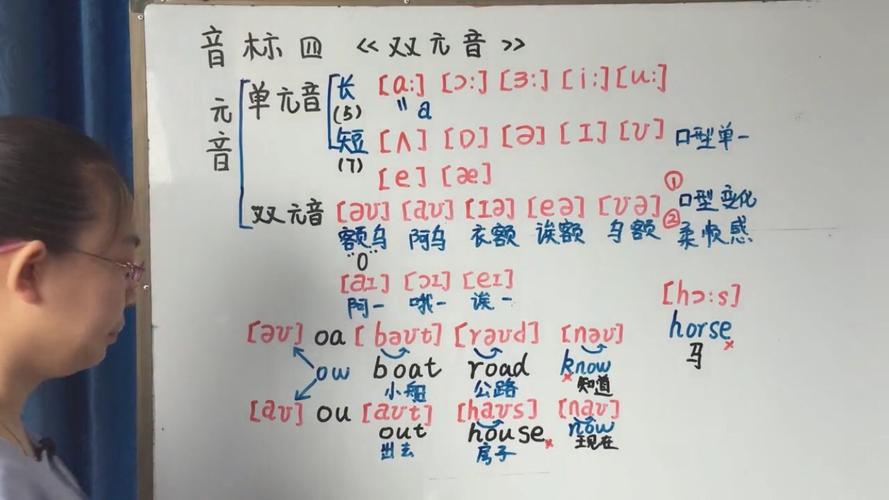 音标四 《双元音》
元音
单元音 长(5) [ɑ:] [ɔ:] [ɜ:] [i:] [u:]
〃 a
短(7) [ʌ] [ɒ] [ə] [ɪ] [ʊ] 口型单一
[e] [æ]
双元音 [əʊ] [aʊ] [ɪə] [eə] [ʊə] ①口型变化
额乌 阿乌 衣额 诶额 乌额 ②柔顺感
o
[aɪ] [ɔɪ] [eɪ]
阿一 哦一 诶一
[hɔ:s]
horse
×
马
[əʊ] oa [bəʊt] [rəʊd] [nəʊ]
ow boat road know
×
小船 公路 知道
[aʊ] ou [aʊt] [haʊs] [naʊ]
out house now
×
出去 房子 现在